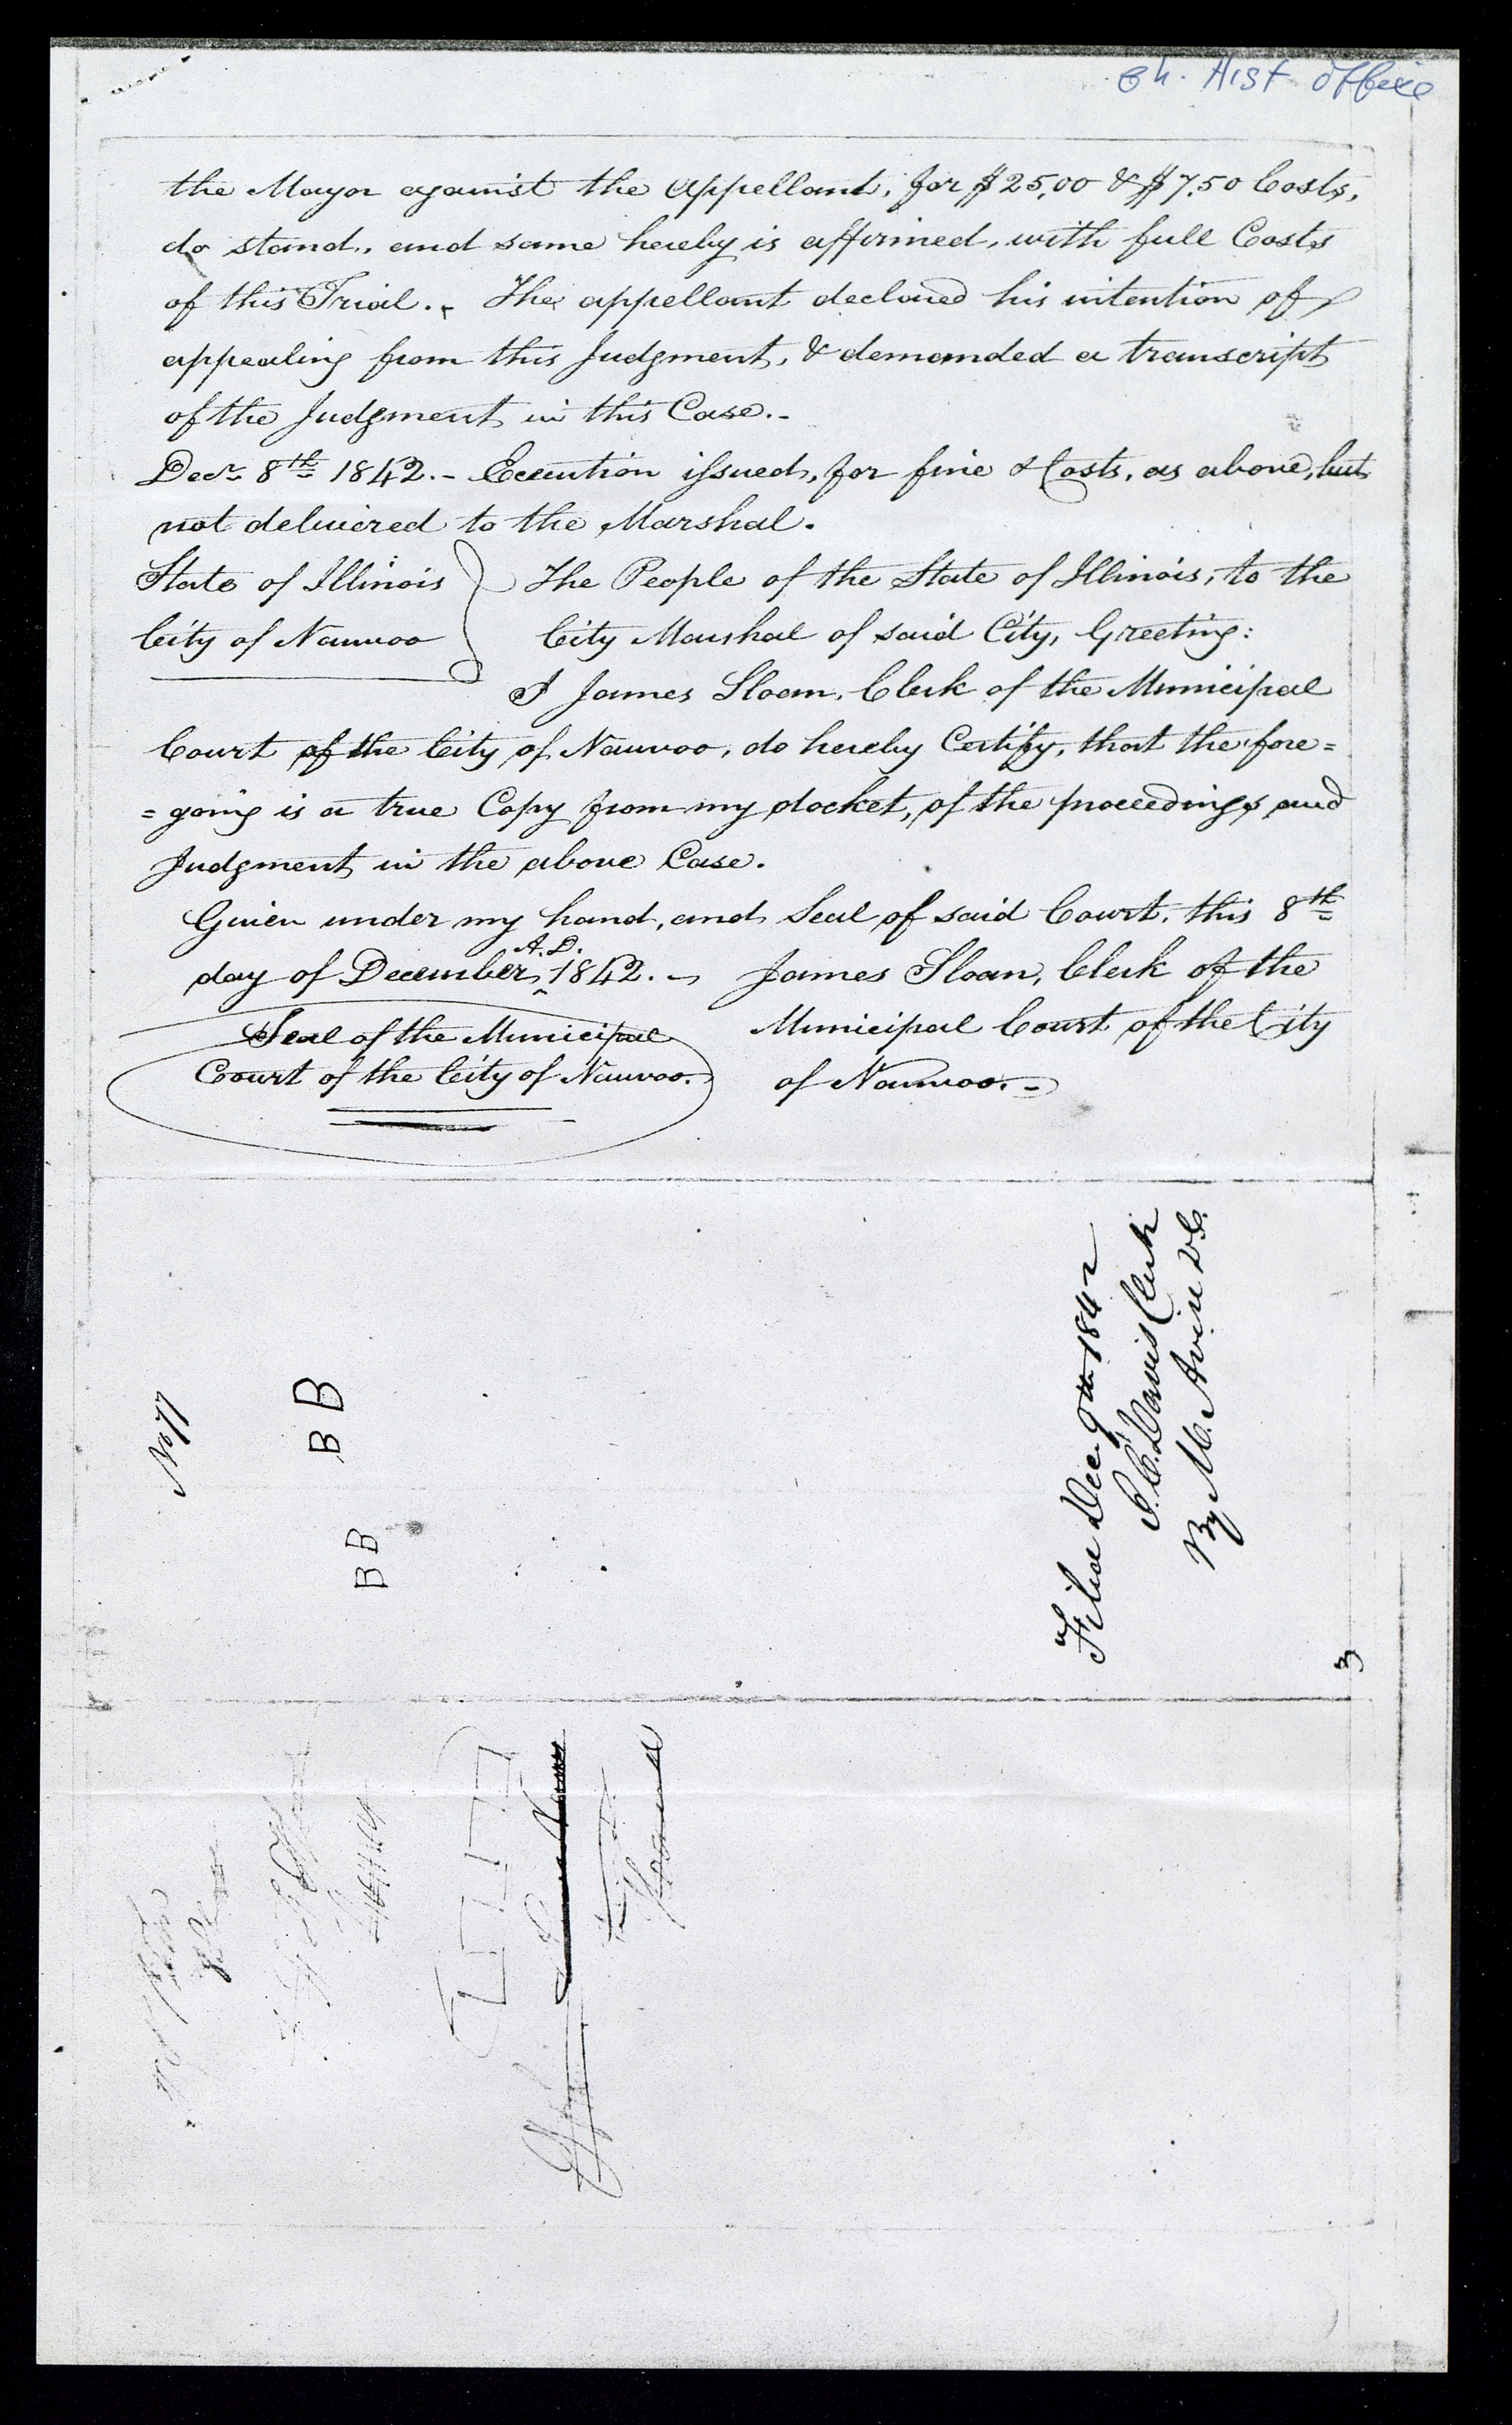 Ch. Hist Office
the Mayor against the Appellant, for $25,00 & $7.50 Costs,
do stand, and same hereby is affirmed, with full Costs
of this Trial. - The appellant declared his intention of
appealing from this Judgment, & demanded a transcript
of the Judgment in this Case. -
Decr 8th 1842. - Execution issued, for fine & Costs, as above, but
not delivered to the Marshal.
State of Illinois } The People of the State of Illinois, to the
City of Nauvoo City Marshal of said City, Greeting:
I James Sloan, Clerk of the Municipal
Court of the City of Nauvoo, do hereby Certify, that the fore=
=going is a true Copy from my docket, of the proceedings and
Judgment in the above Case.
Given under my hand, and Seal of said Court, this 8th
day of December A.D. 1842. - James Sloan, Clerk of the
Seal of the Municipal Municipal Court of the City
Court of the City of Nauvoo. of Nauvoo. -
No 77
B B
B B
Filed Dec. 9th 1842
S. C. Davis Clerk
By M. Avise D.C.
3